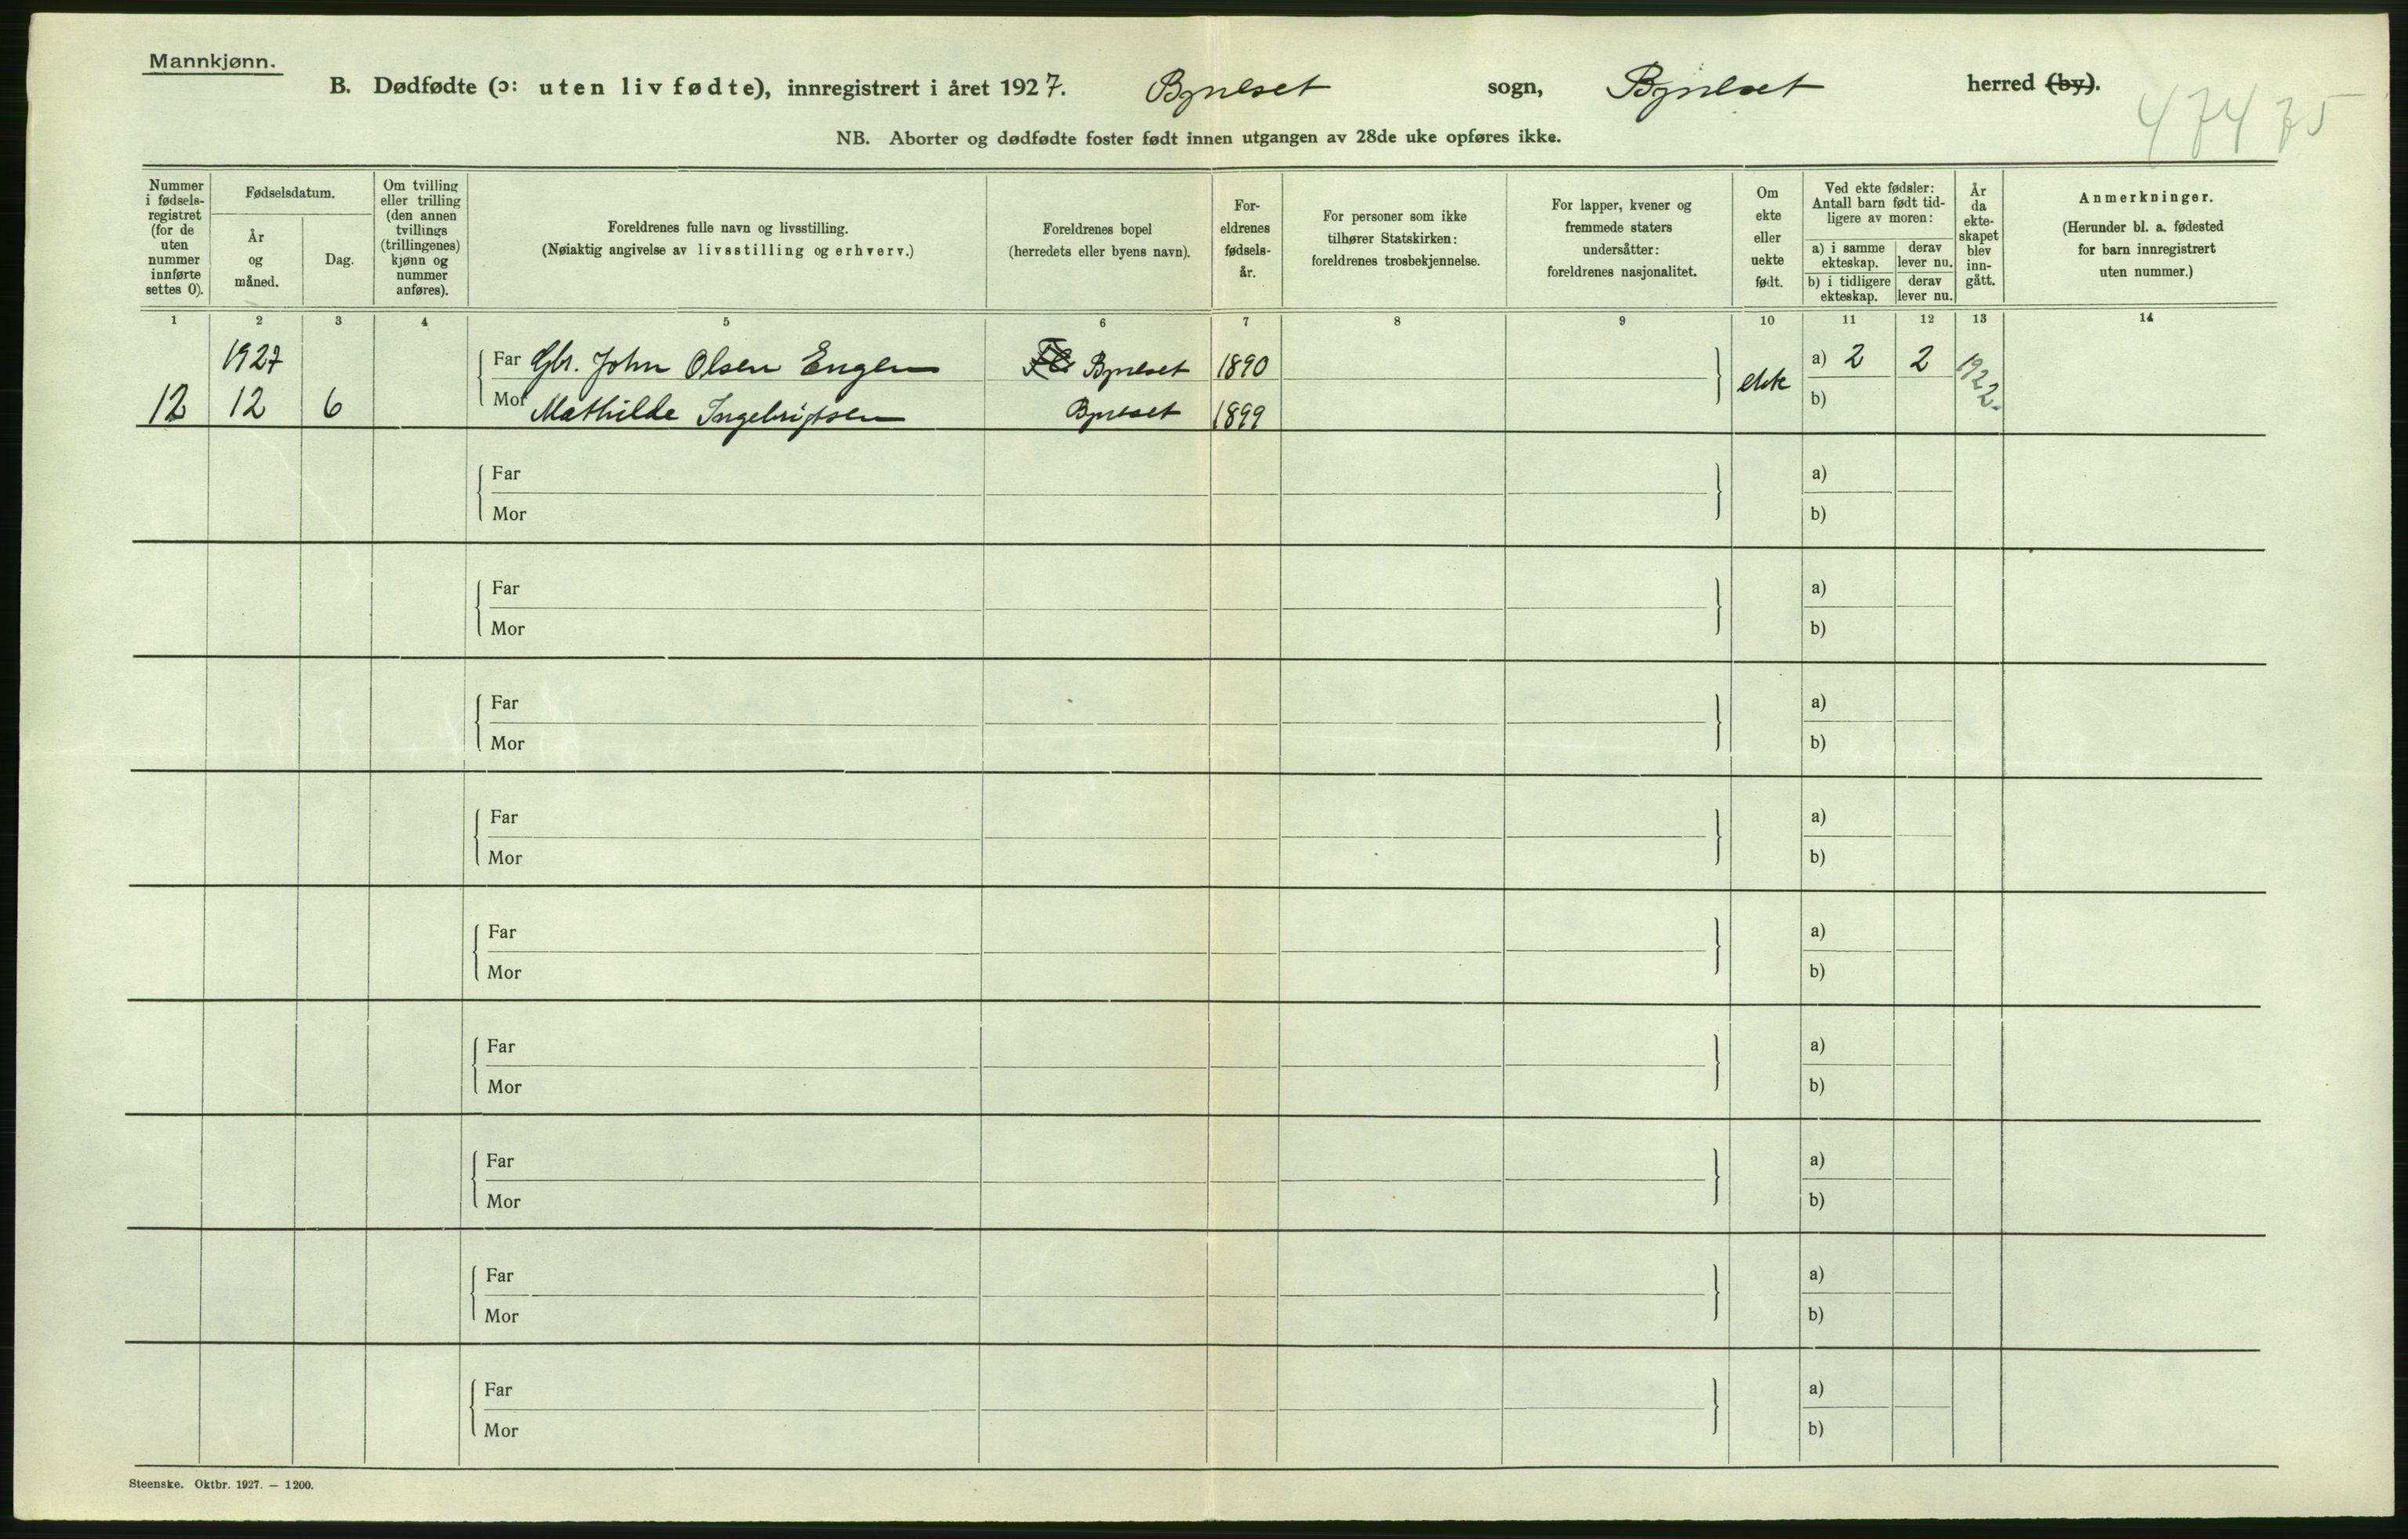 Mannkjønn.
B. Dødfødte (ɔ: uten liv fødte), innregistrert i året 1927. Bynesset sogn, Bynesset herred (by).
47475
NB. Aborter og dødfødte foster født innen utgangen av 28de uke opføres ikke.
Nummer i fødsels-registret (for de uten nummer innførte settes 0).
Fødselsdatum.
År og måned.
Dag.
Om tvilling eller trilling (den annen tvillings (trillingenes) kjønn og nummer anføres).
Foreldrenes fulle navn og livsstilling.
(Nøiaktig angivelse av livsstilling og erhverv.)
Foreldrenes bopel
(herredets eller byens navn).
For-eldrenes fødsels-år.
For personer som ikke tilhører Statskirken: foreldrenes trosbekjennelse.
For lapper, kvener og fremmede staters undersåtter: foreldrenes nasjonalitet.
Om ekte eller uekte født.
Ved ekte fødsler: Antall barn født tid-ligere av moren:
a) i samme ekteskap. derav lever nu.
b) i tidligere ekteskap. derav lever nu.
År da ekte-skapet blev inn-gått.
Anmerkninger.
(Herunder bl. a. fødested for barn innregistrert uten nummer.)
1 2 3 4 5 6 7 8 9 10 11 12 13 14
1927 Far Gbr. John Olsen Engen Bynesset 1890 ekte a) 2 2 1922.
12 12 6 Mor Mathilde Ingebrigtsen Bynesset 1899 b)
Far a)
Mor b)
Far a)
Mor b)
Far a)
Mor b)
Far a)
Mor b)
Far a)
Mor b)
Far a)
Mor b)
Far a)
Mor b)
Far a)
Mor b)
Far a)
Mor b)
Steenske. Oktbr. 1927. — 1200.